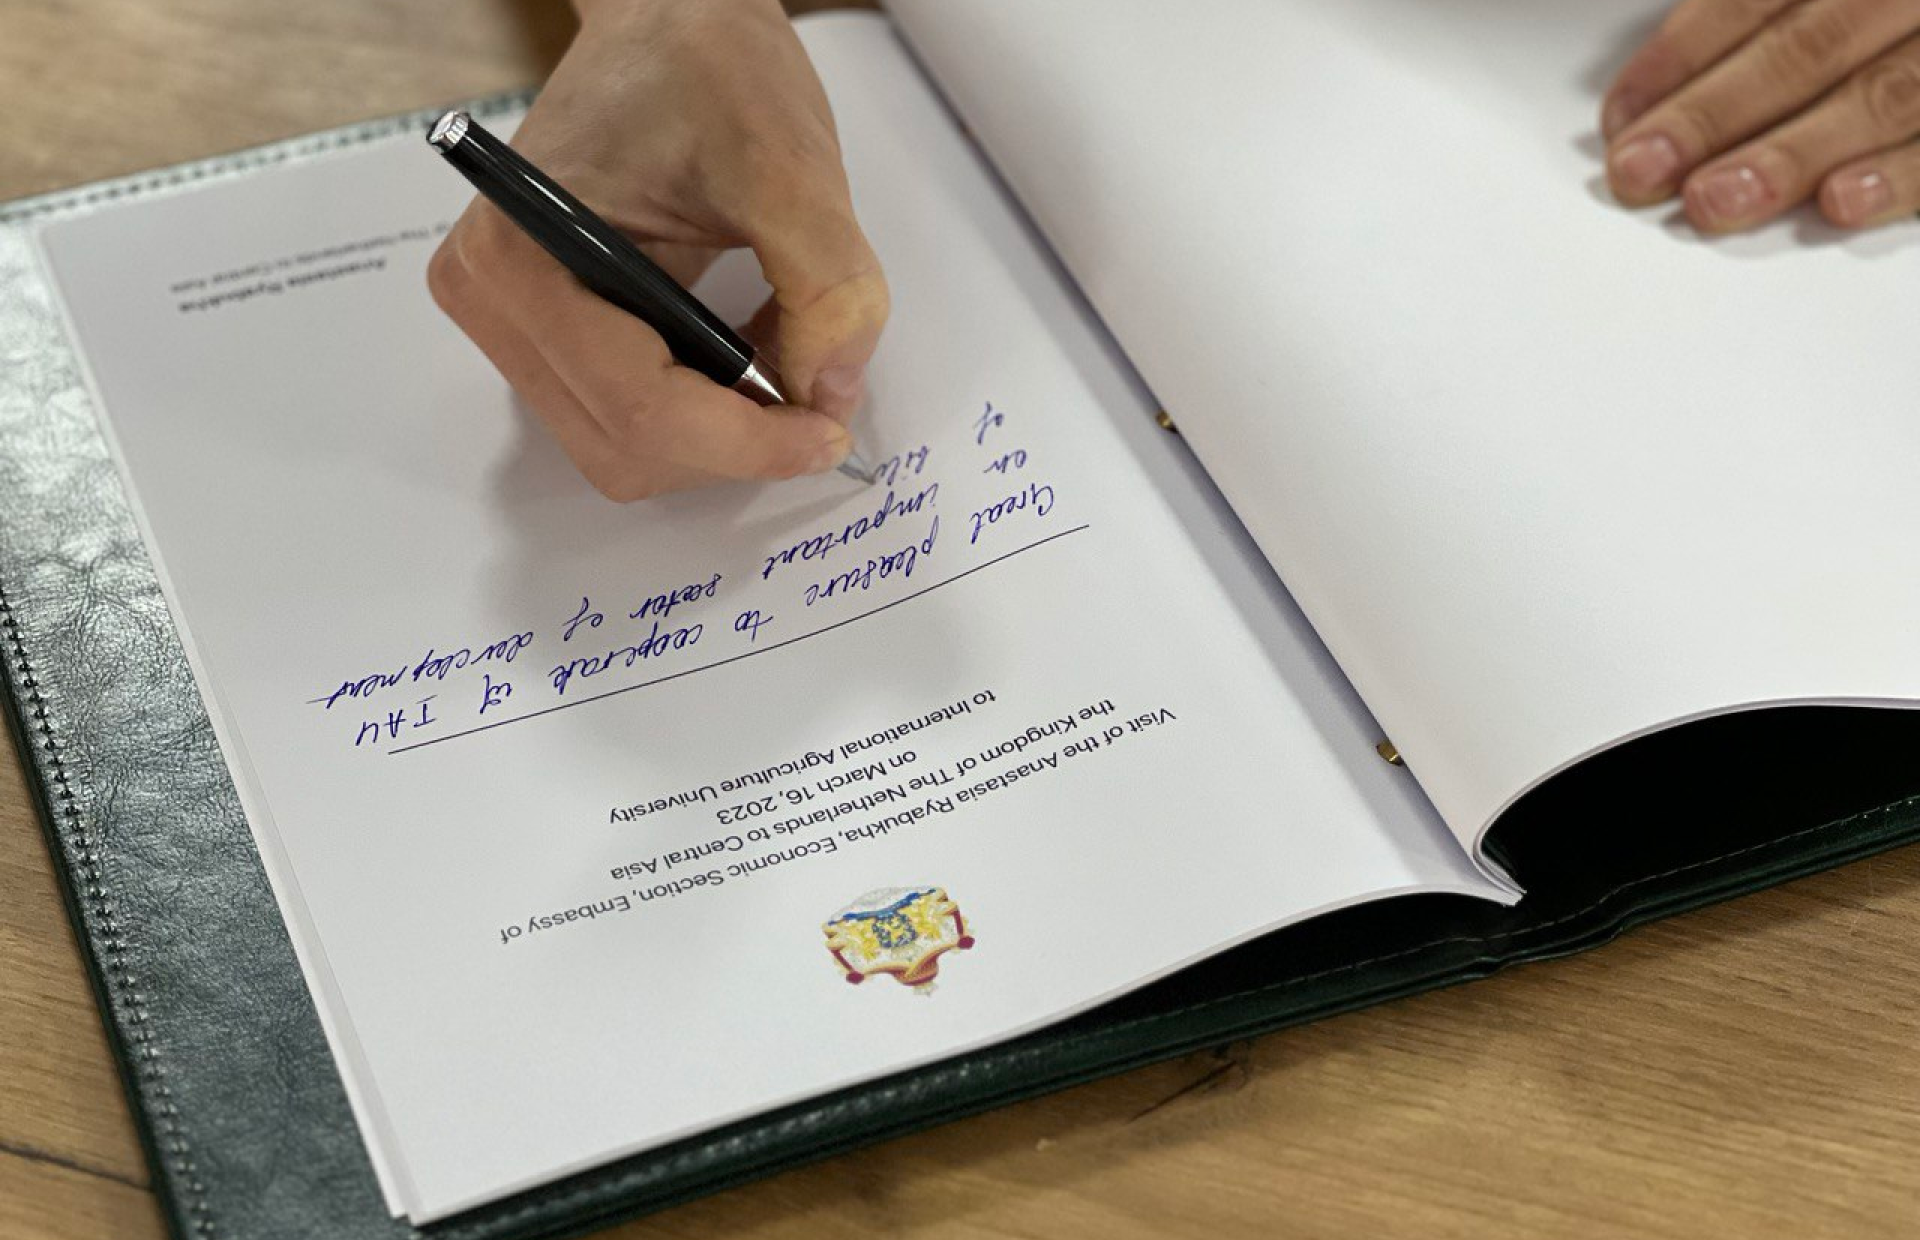 Visit of the Anastasia Ryabukha, Economic Section, Embassy of
the Kingdom of The Netherlands to Central Asia
on March 16, 2023
to International Agriculture University
Great pleasure to cooperate w/ IAU
on important sector of development
of bila
Anastasia Ryabukha
of The Netherlands to Central Asia